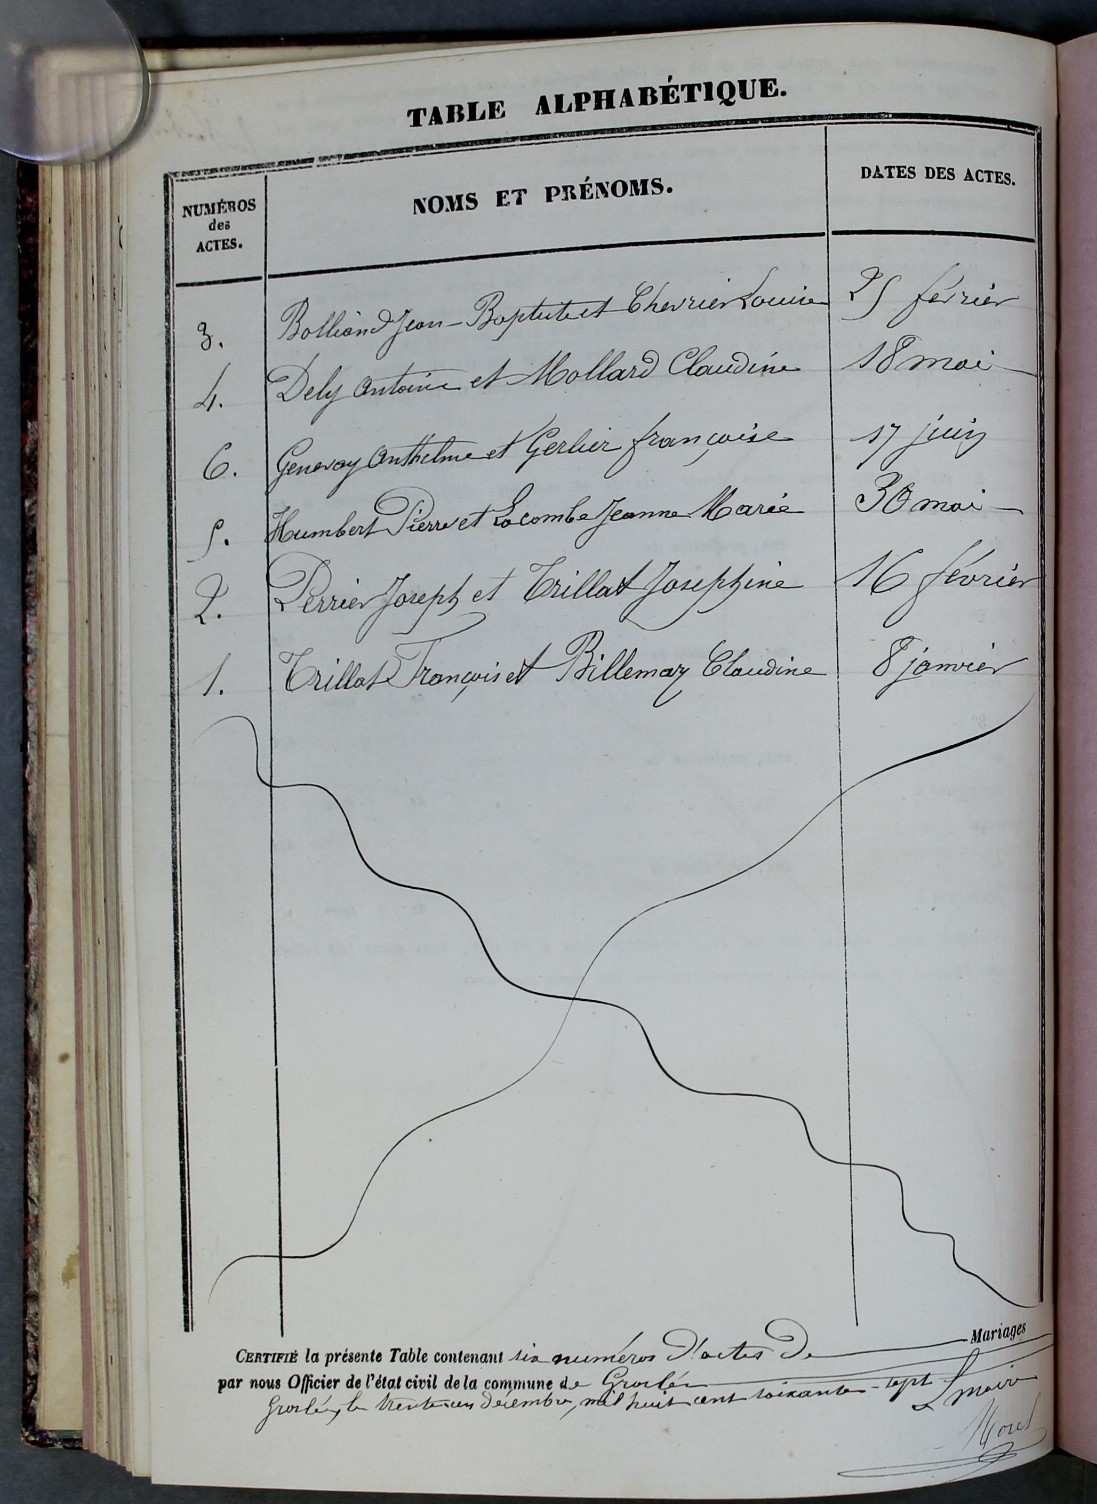 TABLE ALPHABÉTIQUE.
NUMÉROS des ACTES. NOMS ET PRÉNOMS. DATES DES ACTES.
3. Bolliand Jean-Baptiste et Chevrier Louise 25 février
4. Dely Antoine et Mollard Claudine 18 mai
6. Genevay Anthelme et Gerlier françoise 17 juin
5. Humbert Pierre et Lacombe Jeanne Marie 30 mai
2. Perrier Joseph et Trillat Joséphine 16 février
1. Trillat François et Billemaz Claudine 8 janvier
CERTIFIÉ la présente Table contenant six numéros d'actes de Mariages
par nous Officier de l'état civil de la commune de Groslée
Groslée, le trente un décembre, mil huit cent soixante-sept
L maire